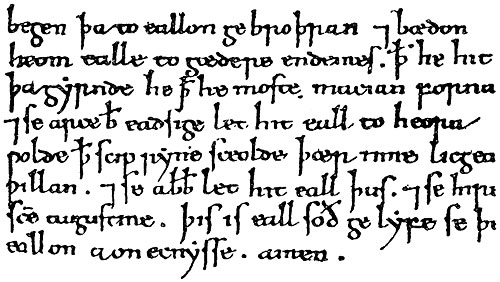 begen þa to eallon gebroþran ⁊ bædon
heom ealle to gædere endemes. ꝥ he hit
þa gyrnde he ꝥ he moste. macian forna
⁊ se arceb̄ eadsige let hit eall to heora
wolde ꝥ scip ryne sceolde þær inne licgea
willan. ⁊ se abb̄ let hit eall þus. ⁊ se hire
sc̄e augustine. þis is eall soð gelyfe se þe
eallon a on ecnysse. amen.